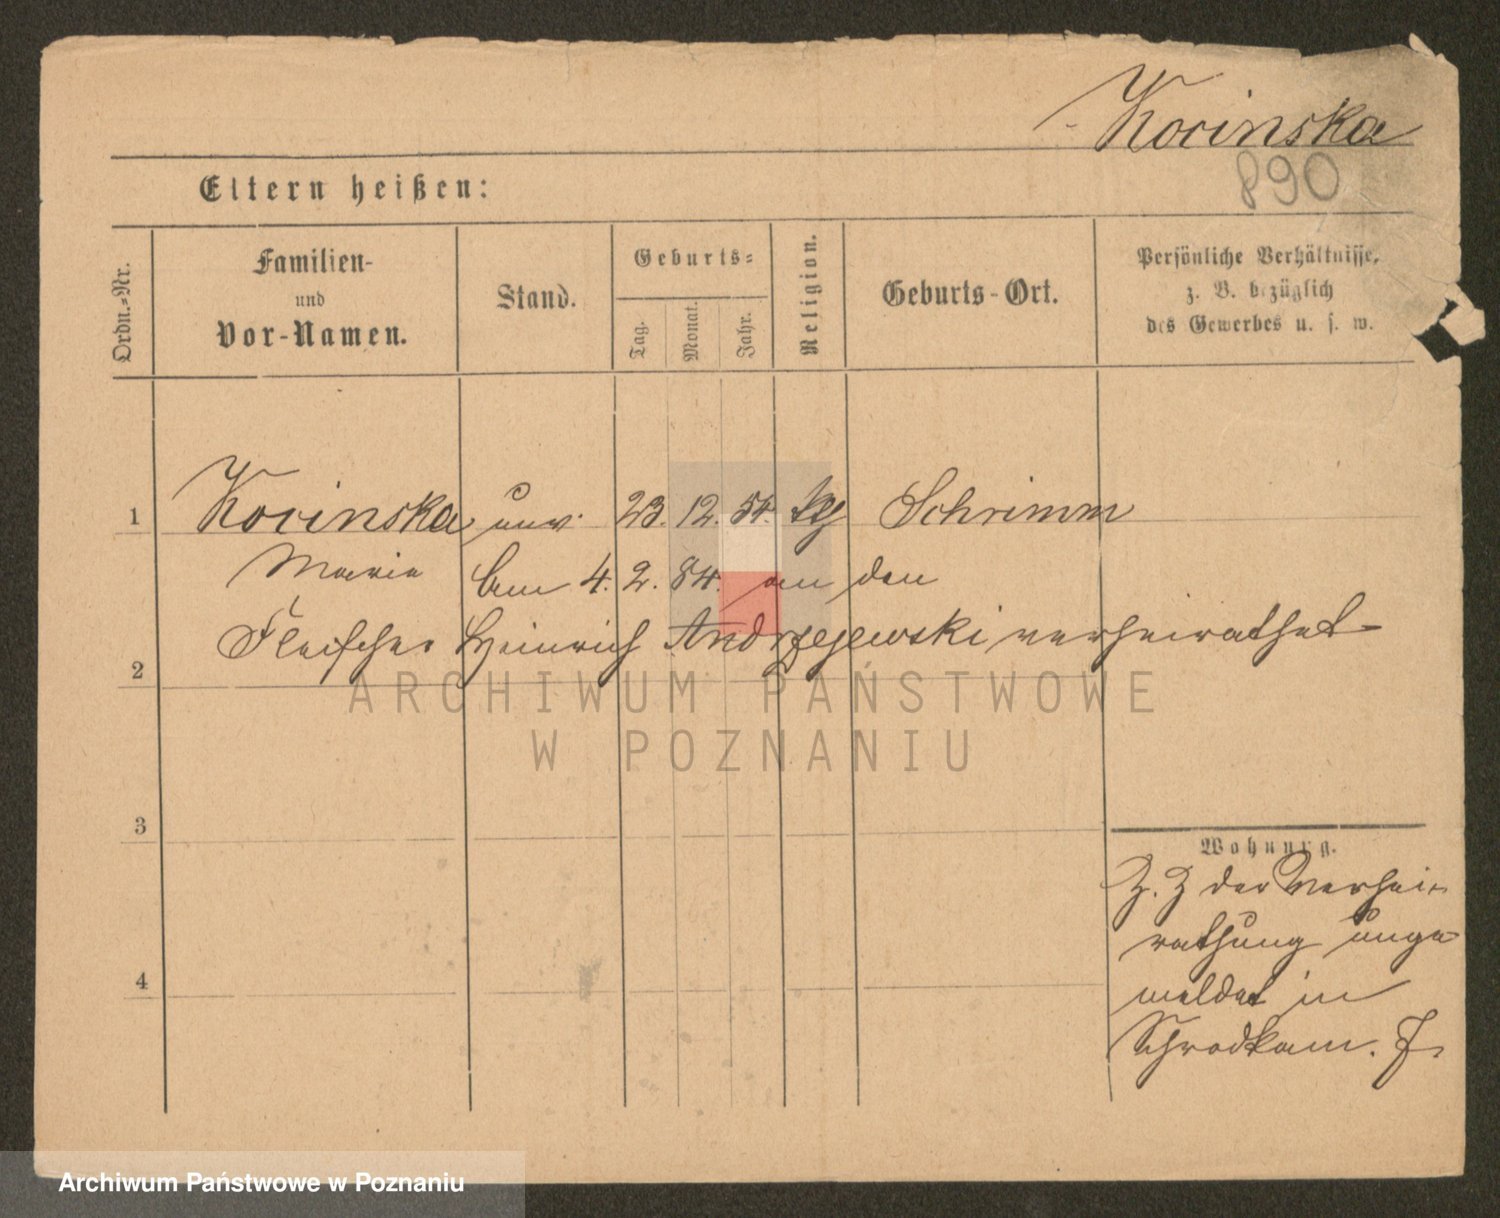 Kocinska
890
Eltern heißen:
Ordn.-Nr.
Familien-
und
Vor-Namen.
Stand.
Geburts-
Tag.
Monat.
Jahr.
Religion.
Geburts-Ort.
Persönliche Verhältnisse,
z. B. bezüglich
des Gewerbes u. s. w.
1 Kocinska unv. 23. 12. 54. kt Schrimm
Marie Am 4. 2. 84. an den
Fleischer Heinrich Andrzejewski verheirathet
2
3
4
Wohnung.
Z. Z der Verhei-
rathung ange-
meldet in
Schrodkam. F.
ARCHIWUM PAŃSTWOWE
W POZNANIU
Archiwum Państwowe w Poznaniu